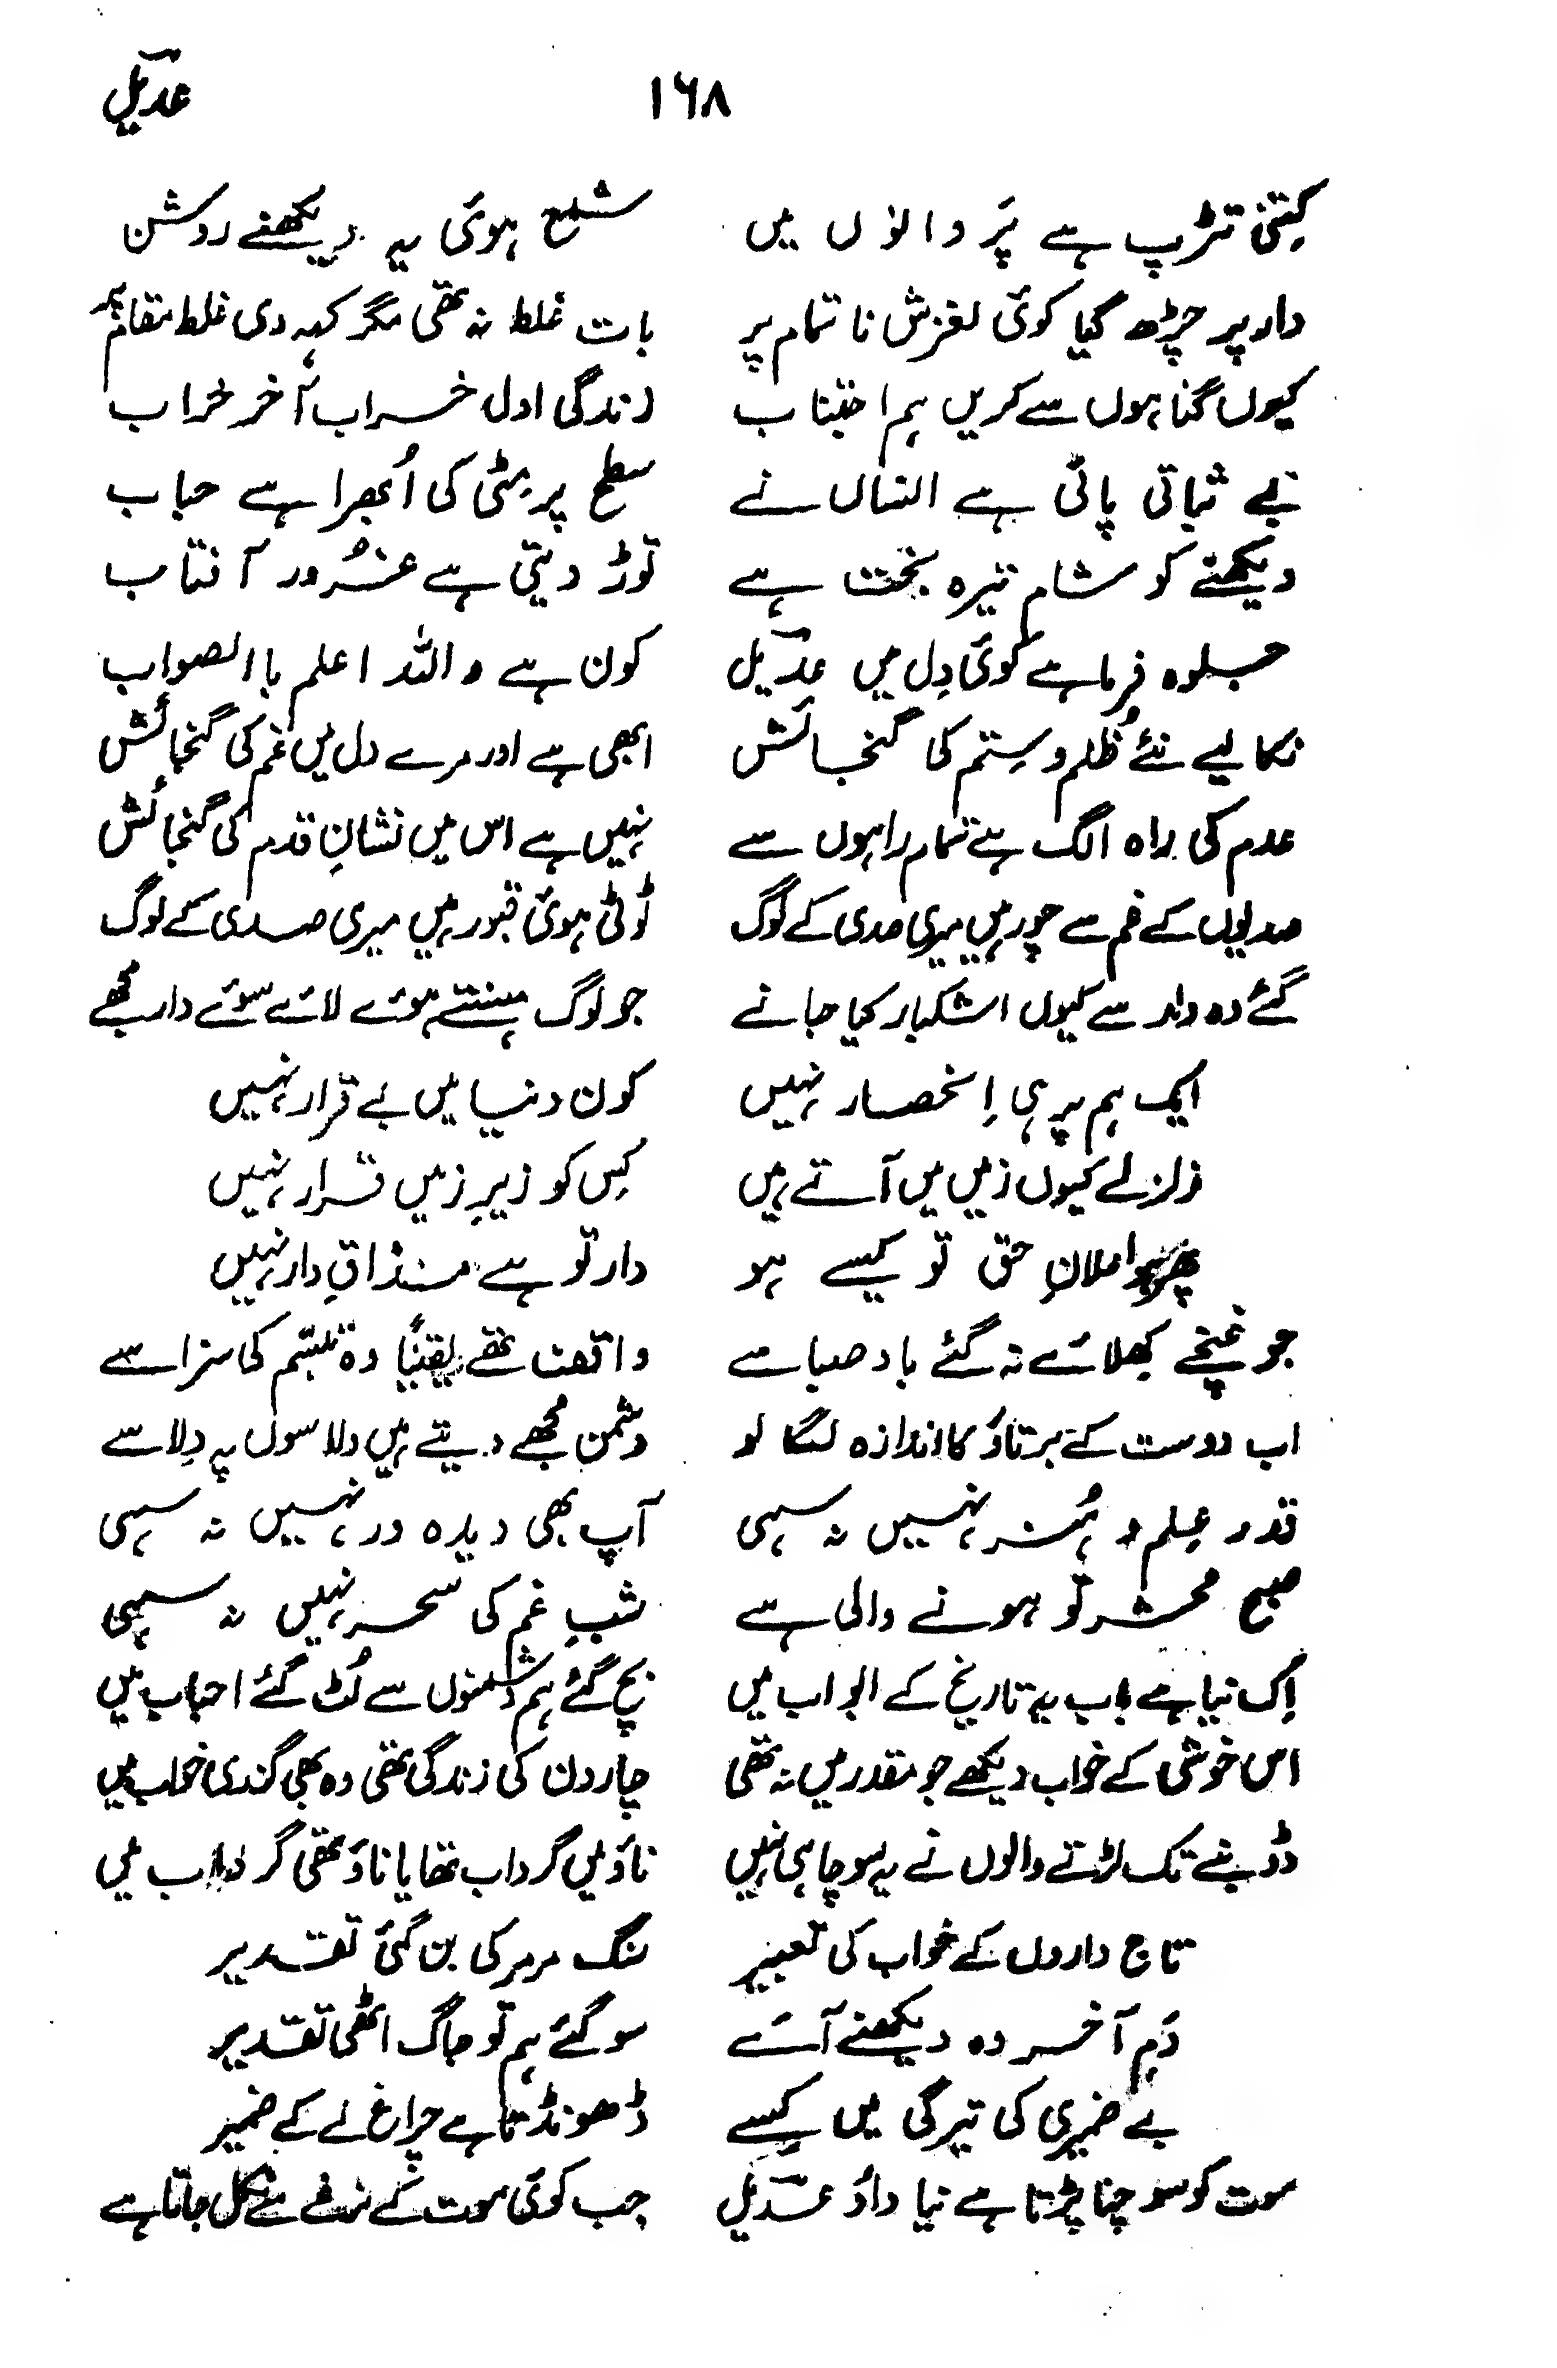 عدیل ۱۶۸
کتنی تڑپ ہے پَروانوں میں شمع ہوئی یہ دیکھنے روشن
دار پر چڑھ گیا کوئی لغزش ناتمام پر بات غلط نہ تھی مگر کہہ دی غلط مقام پر
کیوں گناہوں سے کریں ہم اجتناب زندگی اول خراب آخر خراب
بے ثباتی پائی ہے انساں نے سطح پر مٹی کی اُبھرا ہے حباب
دیکھنے کو شام تیرہ بخت ہے توڑ دیتی ہے غرُور آفتاب
جلوہ فرما ہے کوئی دِل میں عدیل کون ہے واللہ اعلم باالصواب
نکالیے نئے ظُلم و سِتم کی گنجائش ابھی ہے اور مرے دل میں غم کی گنجائش
عدم کی راہ الگ ہے تمام راہوں سے نہیں ہے اس میں نشانِ قدم کی گنجائش
صدیوں کے غم سے چور ہیں میری صدی کے لوگ ٹوٹی ہوئی قبور ہیں میری صدی کے لوگ
گئے وہ دار سے کیوں اشکبار کیا جانے جو لوگ ہنستے ہوئے لائے سوئے دار مجھے
ایک ہم پر ہی اِنحصار نہیں کون دنیا میں بے قرار نہیں
زلزلے کیوں زمیں میں آتے ہیں کِس کو زیرِ زمیں قرار نہیں
پھر ہو اعلانِ حق تو کیسے ہو دار تو ہے مذاقِ دار نہیں
جو غنچے کھلائے نہ گئے باد صبا سے واقف تھے یقیناً وہ تبسّم کی سزا سے
اب دوست کے برتاؤ کا اندازہ لگا لو دشمن مجھے دیتے ہیں دلاسوں پہ دِلاسے
قدر عِلم و ہُنر نہیں نہ سہی آپ بھی دیدہ ور نہیں نہ سہی
صبح محشر تو ہونے والی ہے شبِ غم کی سحر نہیں نہ سہی
اِک نیا ہے باب یہ تاریخ کے ابواب میں بچ گئے ہم دشمنوں سے لُٹ گئے احباب میں
اس خوشی کے خواب دیکھے جو مقدر میں نہ تھی چار دن کی زندگی تھی وہ بھی گذری خواب میں
ڈوبنے تک لڑنے والوں نے یہ سوچا ہی نہیں ناؤ میں گرداب تھا یا ناؤ تھی گرداب میں
تاج داروں کے خواب کی تعبیر سنگ مرمر کی بن گئی تقدیر
دَم آخر وہ دیکھنے آئے سو گئے ہم تو جاگ اٹھی تقدیر
بے ضمیری کی تیرگی میں کِسے ڈھونڈتا ہے چراغ لے کے ضمیر
موت کو سوچنا پڑتا ہے نیا داؤ عدیل جب کوئی موت کے نرغے سے نکل جاتا ہے